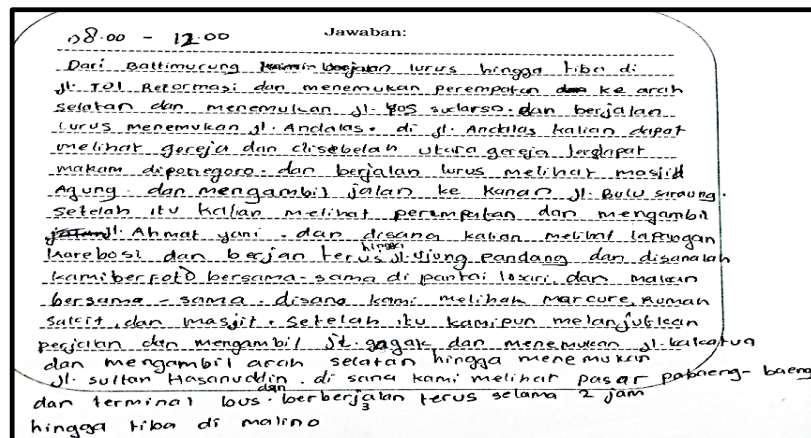 Jawaban:
08.00 - 12.00
Dari Battimurung berjalan lurus hingga tiba di
Jl. Tol Reformasi dan menemukan perempatan ke arah
selatan dan menemukan Jl. Yos sudarso. dan berjalan
lurus menemukan Jl. Andalas. di Jl. Andalas kalian dapat
melihat gereja dan disebelah utara gereja terdapat
makam diponegoro. dan berjalan lurus melihat masjid
Agung. dan mengambil jalan ke kanan Jl. Bulu siraung.
setelah itu kalian melihat perempatan dan mengambil
Jl. Ahmat yani. dan disana kalian melihat lapangan
karebosi dan berjan terus hingga Jl. ujung pandang dan disanalah
kami berfoto bersama-sama di pantai losari, dan makan
bersama-sama. disana kami melihat Marcure, Rumah
sakit, dan masjit. setelah itu kamipun melanjutkan
perjalan dan mengambil Jl. gagak dan menemukan Jl. kakatua
dan mengambil arah selatan hingga menemukan
Jl. sultan Hasanuddin. di sana kami melihat pasar pabaeng-baeng
dan terminal bus. dan berberjalan terus selama 2 jam
3
hingga tiba di malino